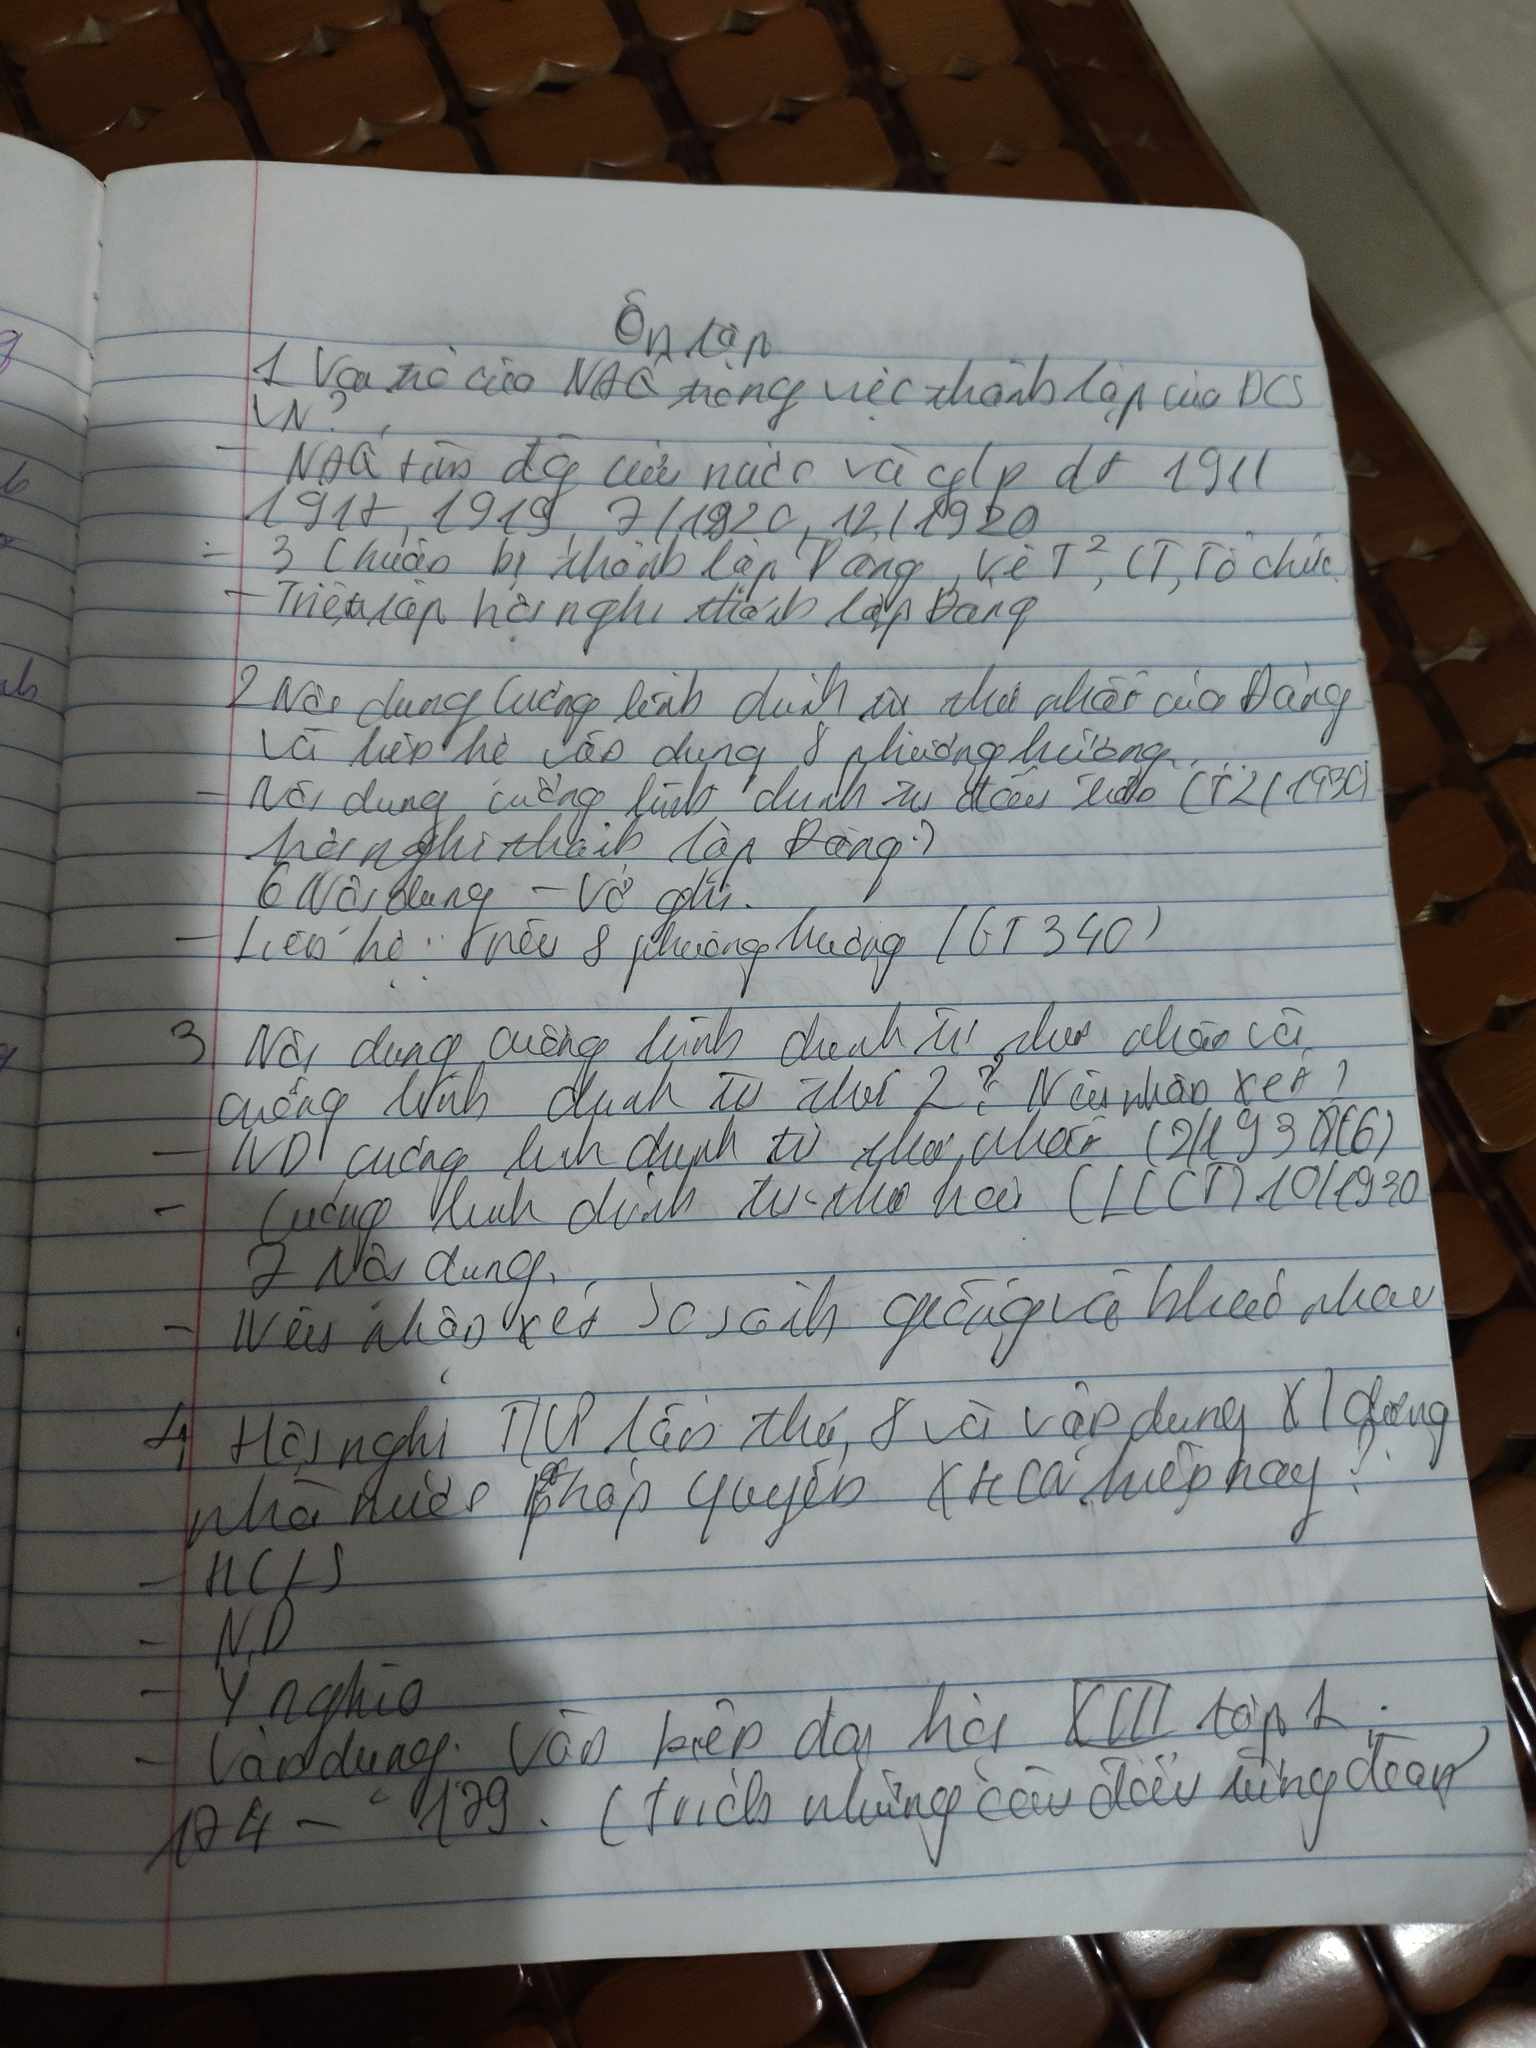 Ôn tập
1 Vai trò của NAQ trong việc thành lập của ĐCS
VN?
- NAQ tìm đg cứu nước và gfp dt 1911
1917, 1919, 7/1920, 12/1920
- 3 Chuẩn bị thành lập Đảng, về T², CT, Tổ chức
- Triệu tập hội nghị thành lập Đảng
2 Nội dung Cương lĩnh chính trị thứ nhất của Đảng
và liên hệ vận dụng 8 phương hướng
- Nội dung cương lĩnh chính trị đầu tiên (T2/1930)
hội nghị thành lập Đảng?)
6 Nội dung - Vở ghi.
- Liên hệ: nêu 8 phương hướng (GT 340)
3 Nội dung cương lĩnh chính trị thứ nhất và
cương lĩnh chính trị thứ 2? Nêu nhận xét?
- ND cương lĩnh chính trị thứ nhất (2/1930)(6)
- Cương lĩnh chính trị thứ hai (LCCT) 10/1930
7 Nội dung.
- Nêu nhận xét So sánh giống và khác nhau
4 Hội nghị TW lần thứ 8 và vận dụng XD dựng
nhà nước pháp quyền XHCN hiện nay?
- HCLS
- ND
- Ý nghĩa
- Vận dụng. Văn kiện đại hội XIII tập 1.
174 - 179. (trích những câu đầu từng đoạn)